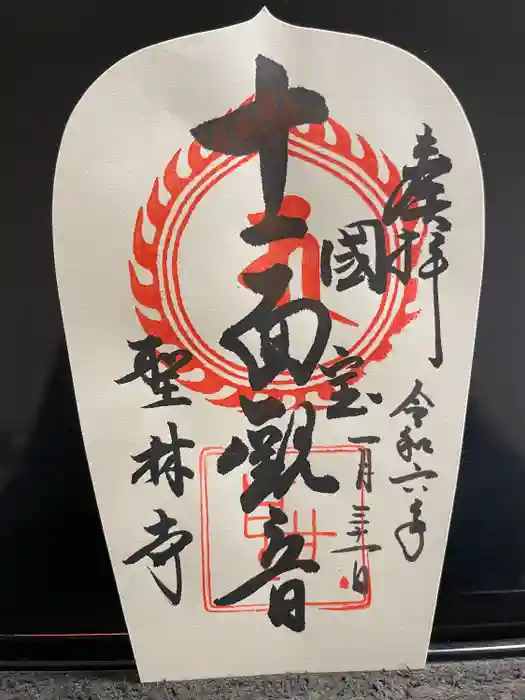 奉拝
令和六年
一月三十一日
國宝
十一面観音
聖林寺